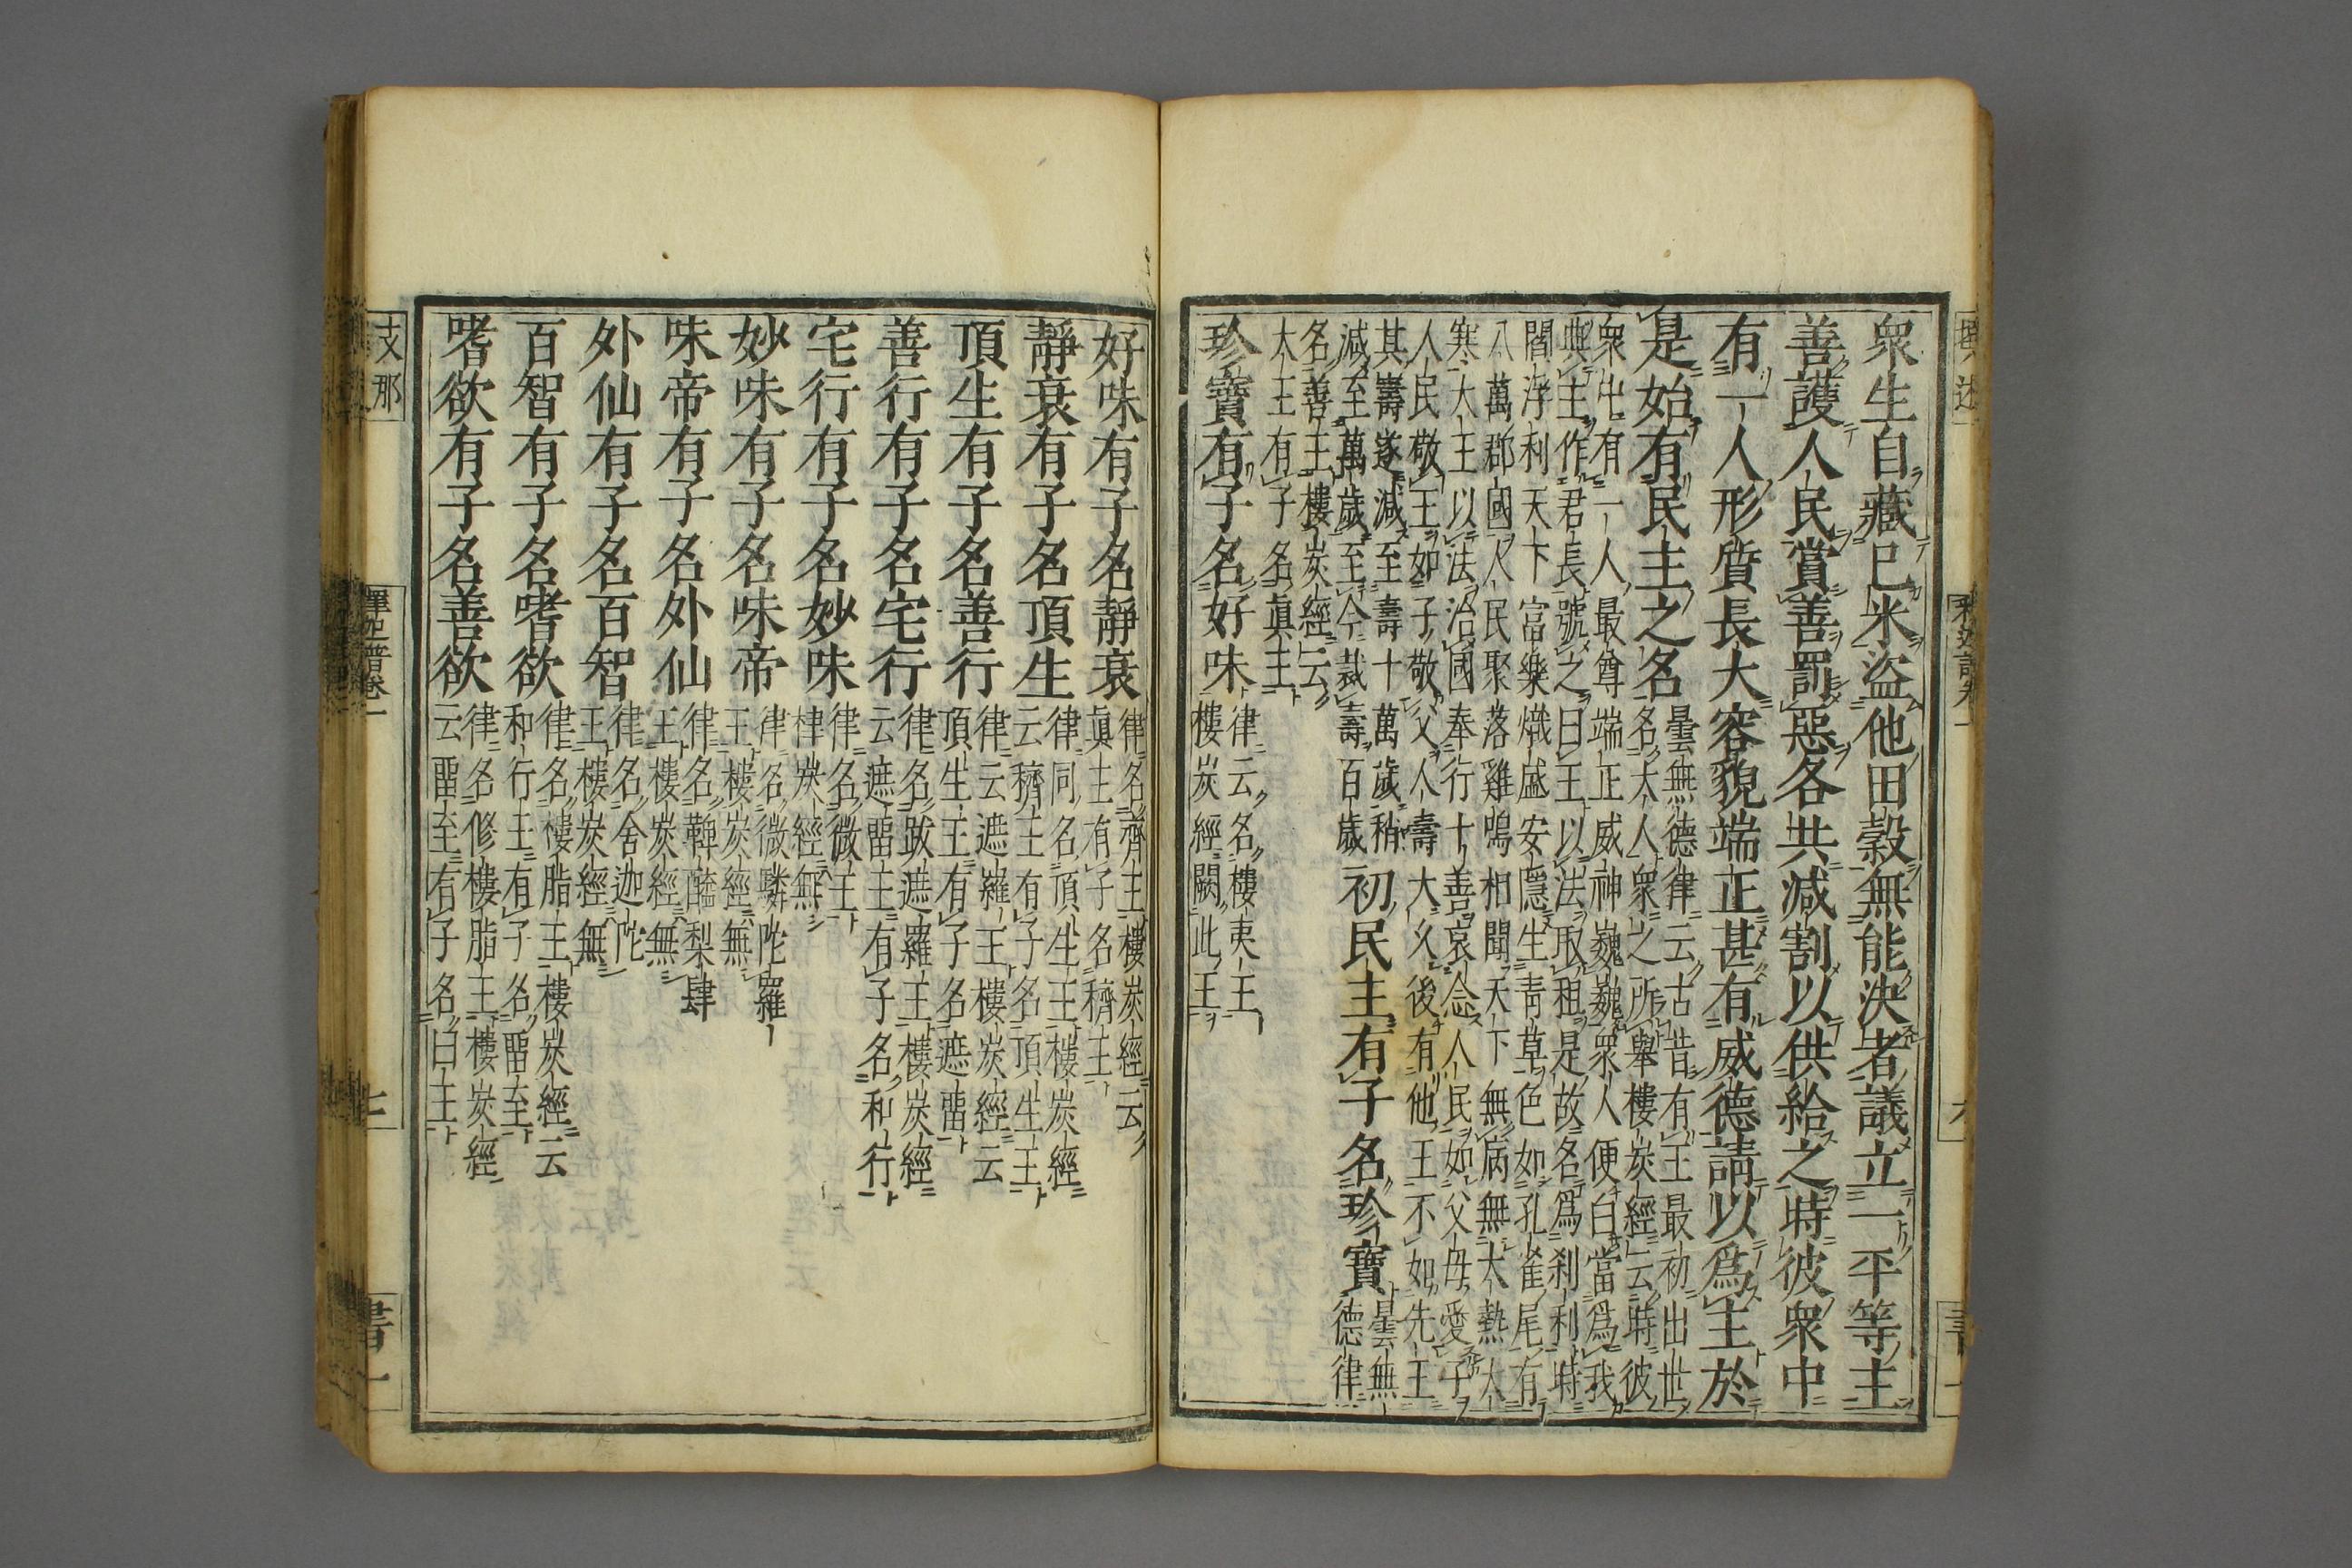 衆生自藏已米盜他田穀無能決者議立一平等主
善護人民賞善罰惡各共減割以供給之時彼衆中
有一人形質長大容貌端正甚有威德請以爲主於
是始有民主之名
曇無德律云古昔有王最初出世
名大人衆之所舉樓炭經云時彼
衆中有一人最尊端正威神巍巍衆人便白當爲我
典主作君長號之曰王以法取租是故名爲刹利時
閻浮利天下富樂熾盛安隱生青草色如孔雀尾有
八萬郡國人民聚落雞鳴相聞天下無病無大熱大
寒大王以法治國奉行十善哀念人民如父母愛子
人民敬王如子敬父人壽大久後有他王不如先王
其壽遂減至壽十萬歲稍
減至萬歲至今裁壽百歲
初民主有子名珍寶
曇無
德律
名善王樓炭經云
大王有子名眞主
珍寶有子名好味
律云名樓夷王
樓炭經闕此王
好味有子名靜衰
律名濟主樓炭經云
眞主有子名穧主
靜衰有子名頂生
律同名頂生王樓炭經
云穧主有子名頂生王
頂生有子名善行
律云遮羅王樓炭經云
頂生王有子名遮畱
善行有子名宅行
律名跋遮羅王樓炭經
云遮畱主有子名和行
宅行有子名妙味
律名微王
樓炭經無
妙味有子名味帝
律名微驎陀羅
王樓炭經無
味帝有子名外仙
律名鞞醯梨肆
王樓炭經無
外仙有子名百智
律名舍迦陀
王樓炭經無
百智有子名嗜欲
律名樓脂王樓炭經云
和行王有子名畱至
嗜欲有子名善欲
律名修樓脂王樓炭經
云畱至有子名曰王
支那
書一